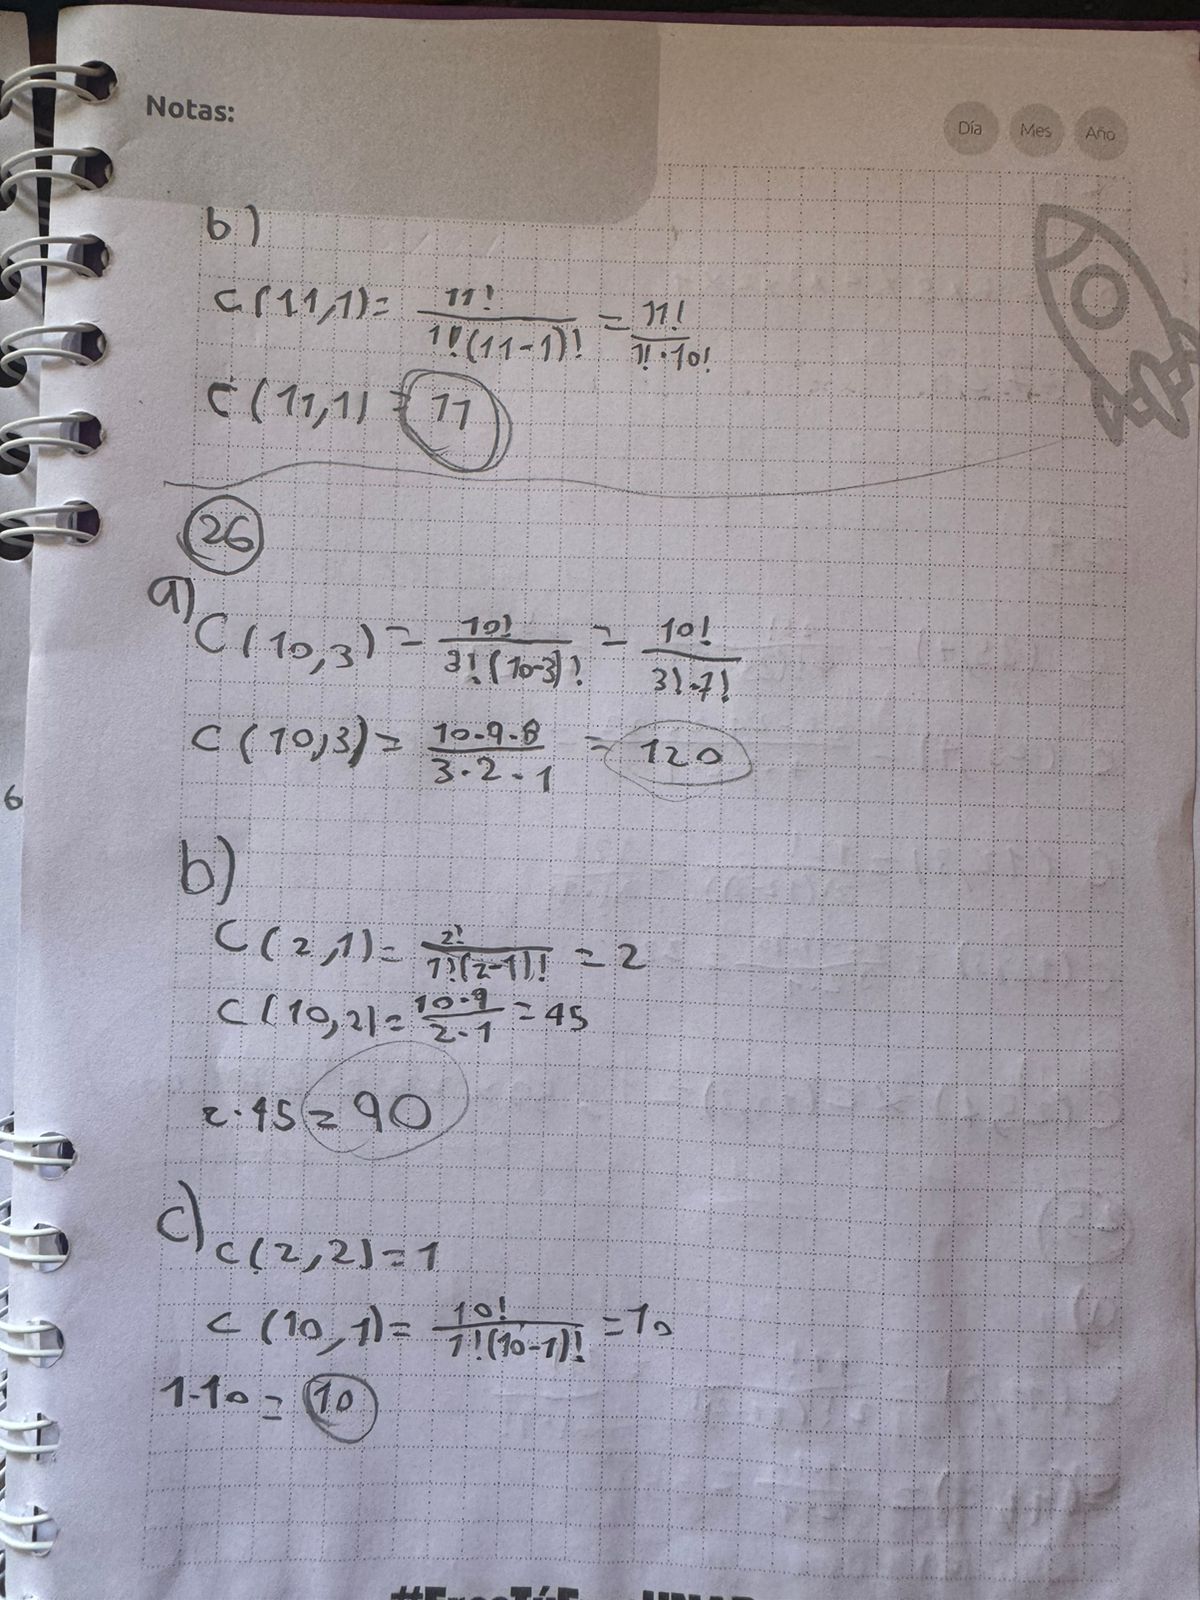 Notas:
Día Mes Año
b)
C(11,1)= 11! / 1!(11-1)! = 11! / 1!·10!
C(11,1) = 11
26
a)
C(10,3) = 10! / 3!(10-3)! = 10! / 3!·7!
C(10,3) = 10·9·8 / 3·2·1 = 120
6
b)
C(2,1) = 2! / 1!(2-1)! = 2
C(10,2) = 10·9 / 2·1 = 45
2·45 = 90
c)
C(2,2) = 1
C(10,1) = 10! / 1!(10-1)! = 10
1·10 = 10